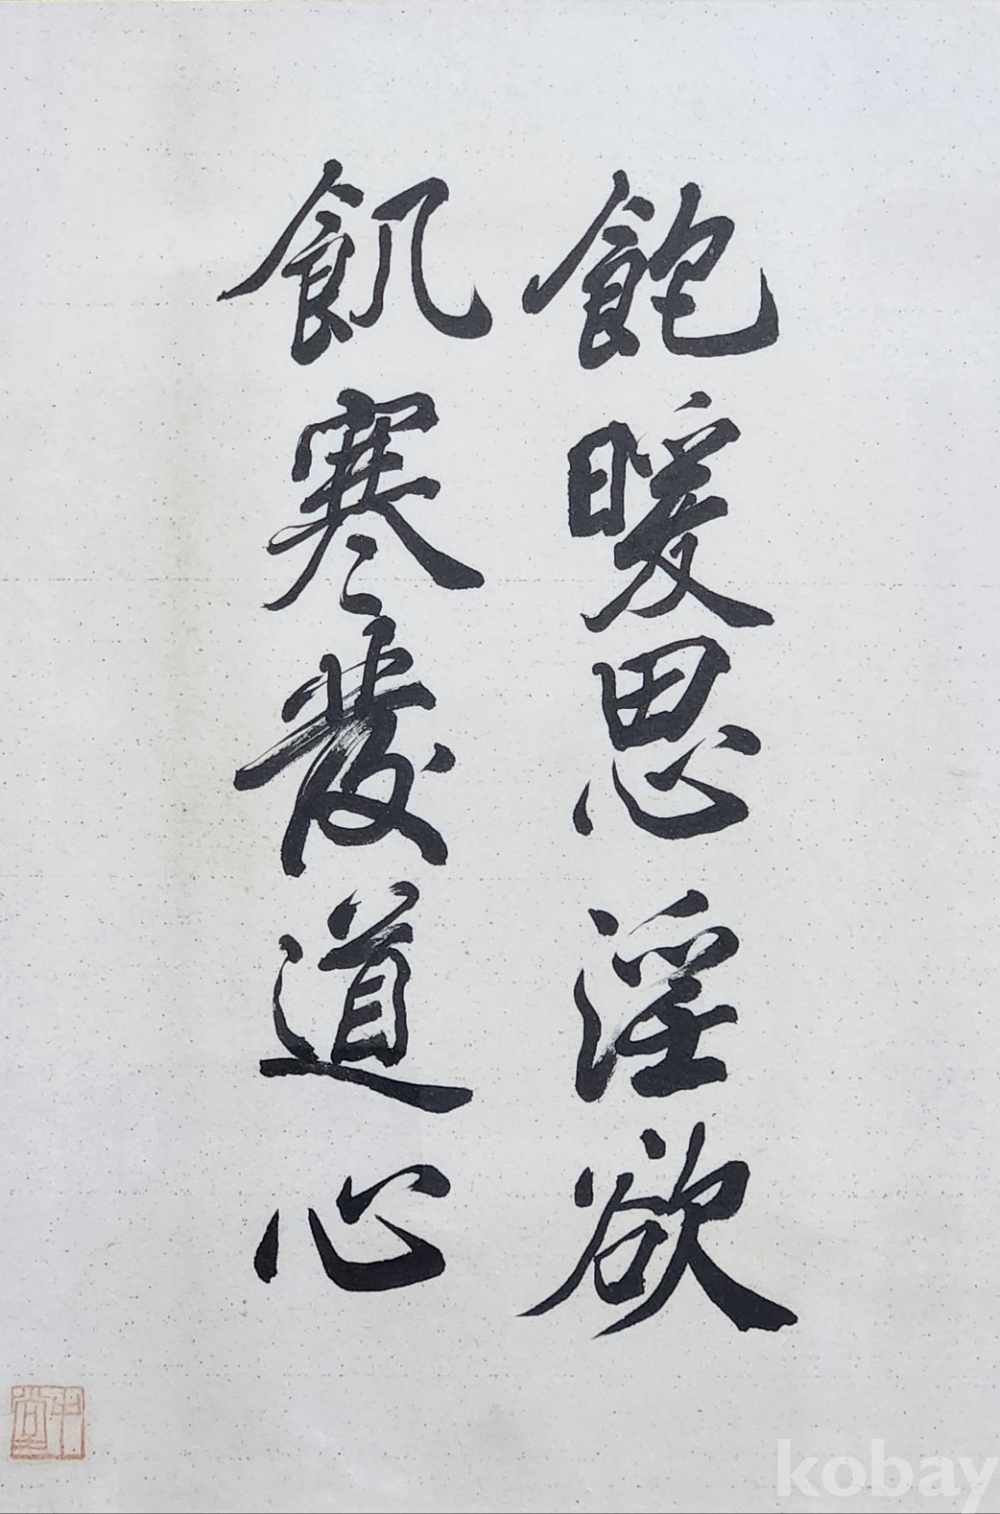 飽暖思淫欲
飢寒發道心
kobay